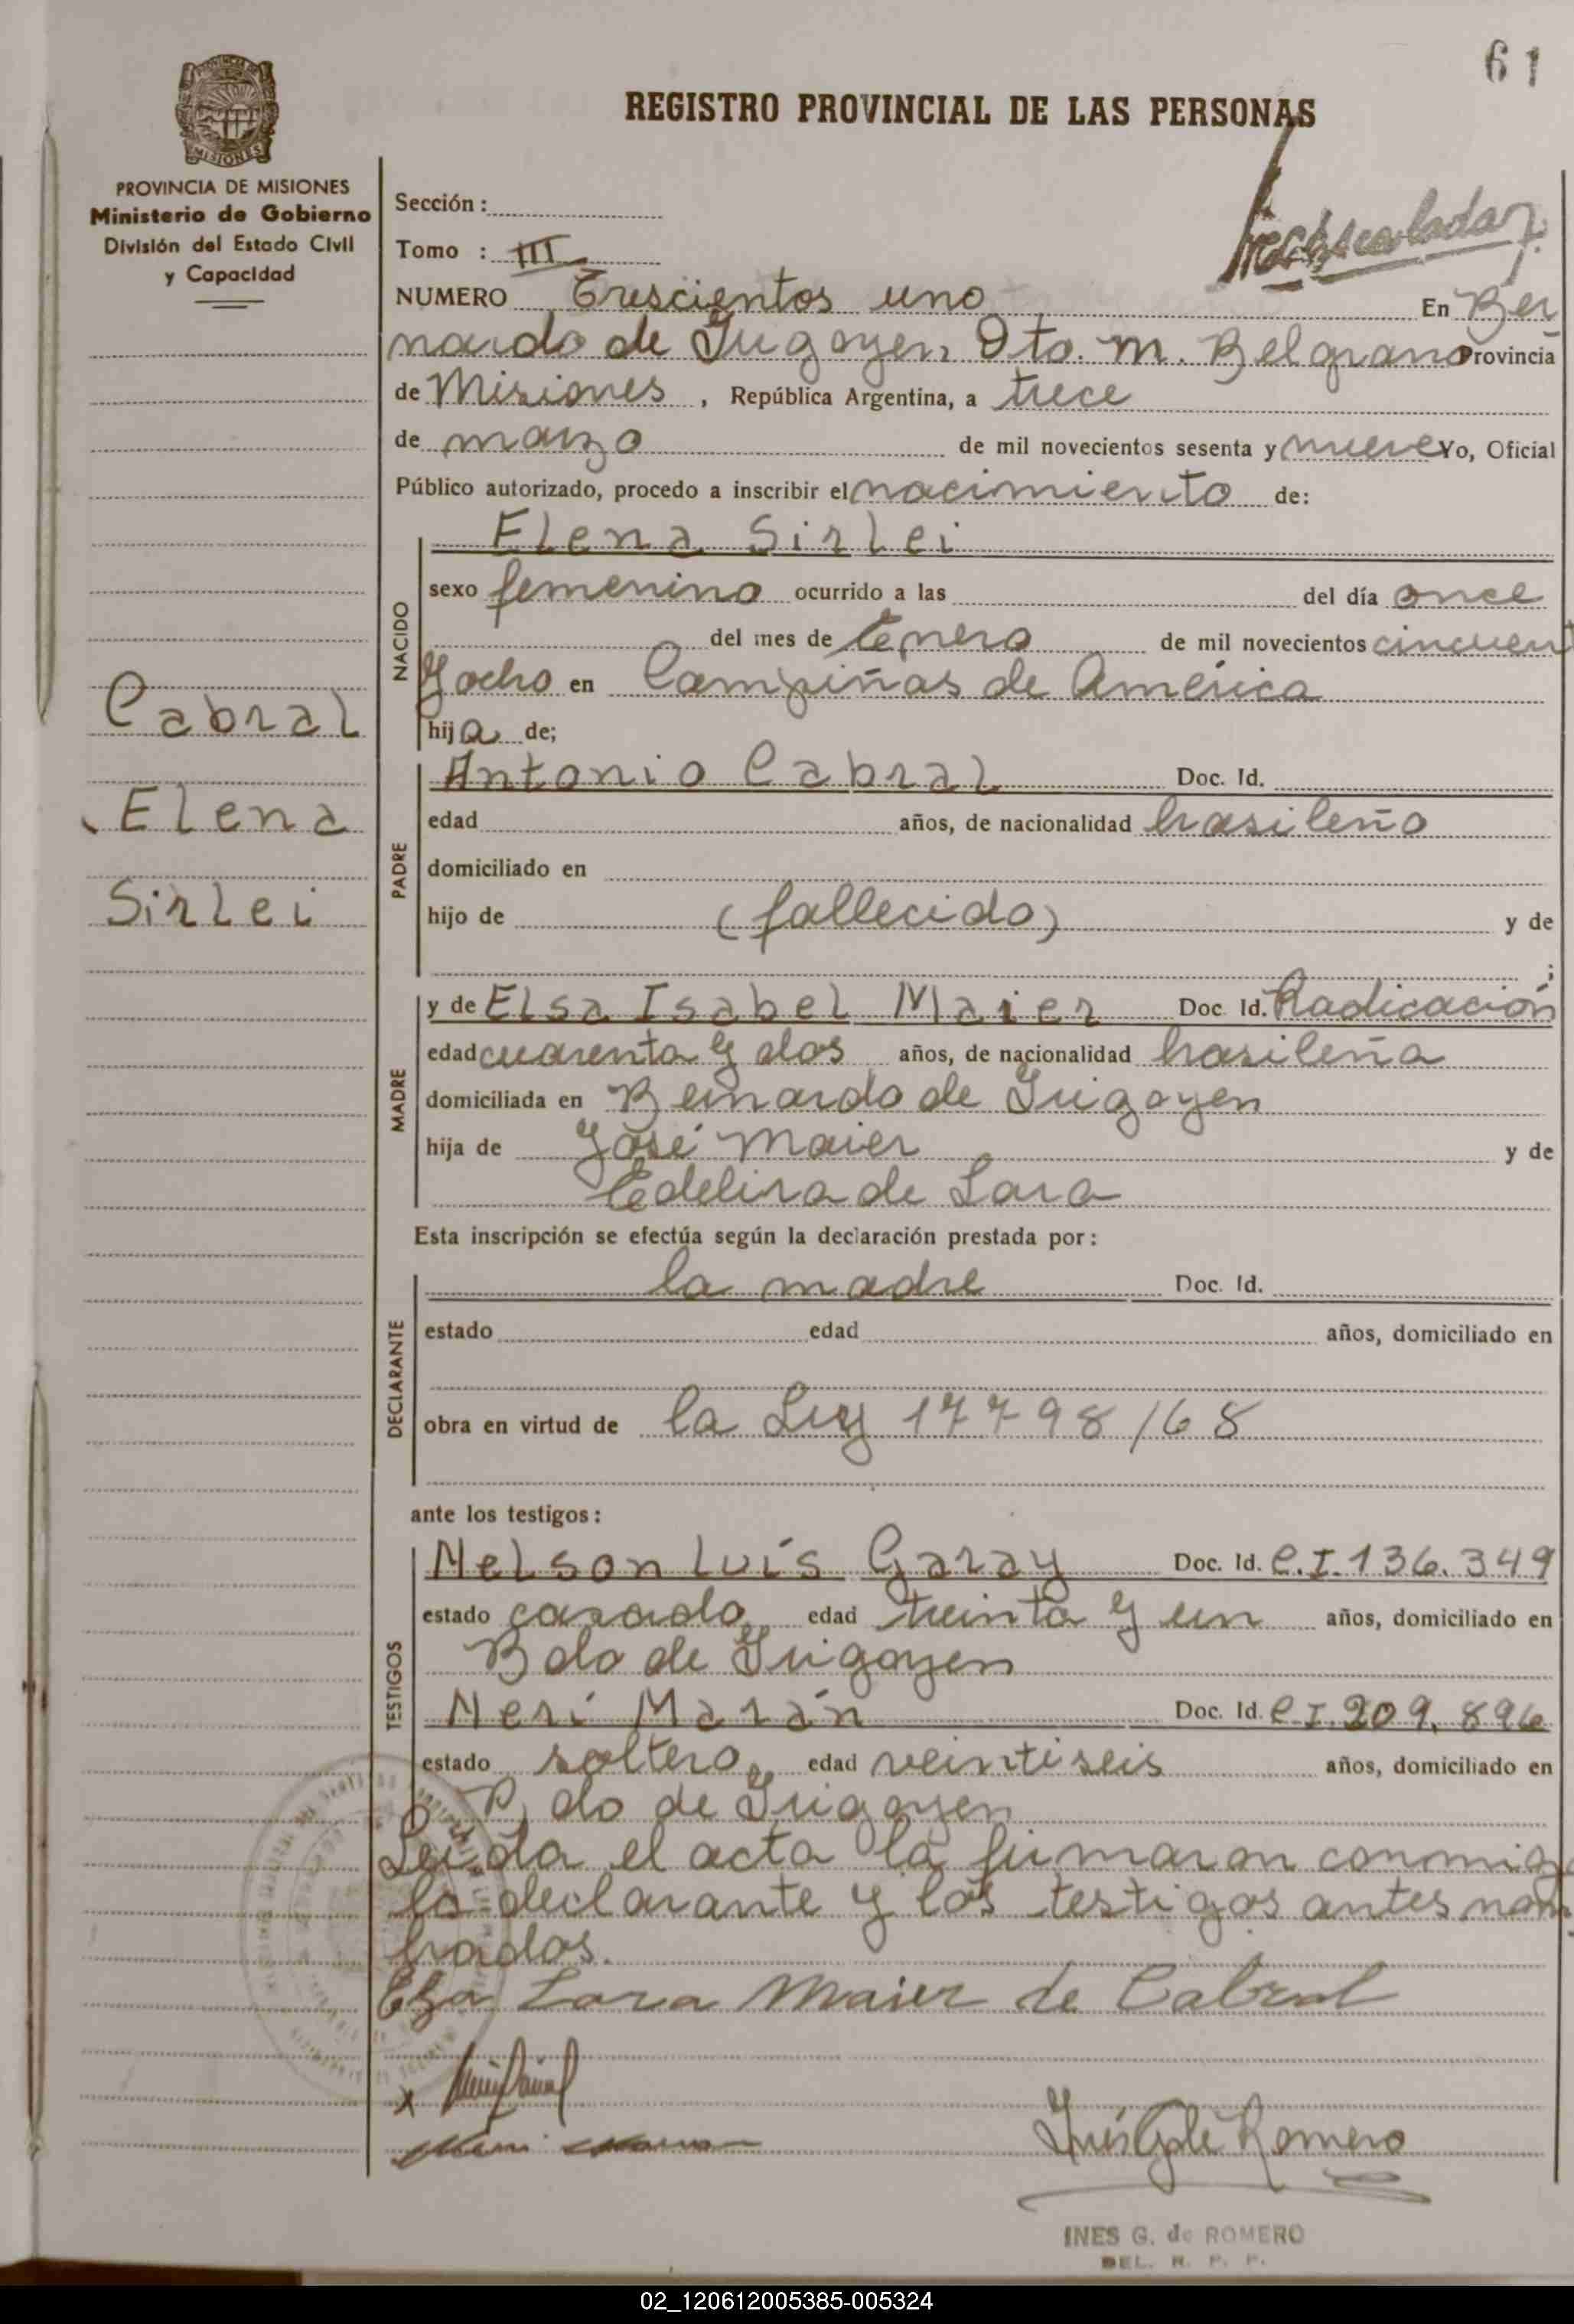 61
REGISTRO PROVINCIAL DE LAS PERSONAS
PROVINCIA DE MISIONES
Ministerio de Gobierno
División del Estado Civil
y Capacidad
Sección :
Tomo : III
NUMERO Trescientos uno En Ber
nardo de Irigoyen Dto. M. Belgrano Provincia
de Misiones, República Argentina, a trece
de marzo de mil novecientos sesenta y nueve Yo, Oficial
Público autorizado, procedo a inscribir el nacimiento de:
Elena Sirlei
NACIDO
sexo femenino ocurrido a las del día once
del mes de Enero de mil novecientos cincuent
y ocho en Campiñas de América
hija de;
Cabral
Elena
Sirlei
PADRE
Antonio Cabral Doc. Id.
edad años, de nacionalidad brasileño
domiciliado en
hijo de (fallecido) y de
;
MADRE
y de Elsa Isabel Maier Doc Id. Radicación
edad cuarenta y dos años, de nacionalidad brasileña
domiciliada en Bernardo de Irigoyen
hija de José Maier y de
Edelira de Lara
Esta inscripción se efectúa según la declaración prestada por :
DECLARANTE
la madre Doc. Id.
estado edad años, domiciliado en
obra en virtud de la Ley 17798/68
ante los testigos :
TESTIGOS
Nelson Luís Garay Doc. Id. C.I. 136.349
estado casado edad treinta y un años, domiciliado en
Bdo de Irigoyen
Neri Marán Doc. Id. C.I. 209.896
estado soltero edad veintiseis años, domiciliado en
B, do de Irigoyen
Leída el acta la firmaron conmigo
la declarante y los testigos antes nom
brados.
Elza Lara Maier de Cabral
x
Inés G. de Romero
INES G. de ROMERO
DEL. R. P. P.
02_120612005385-005324